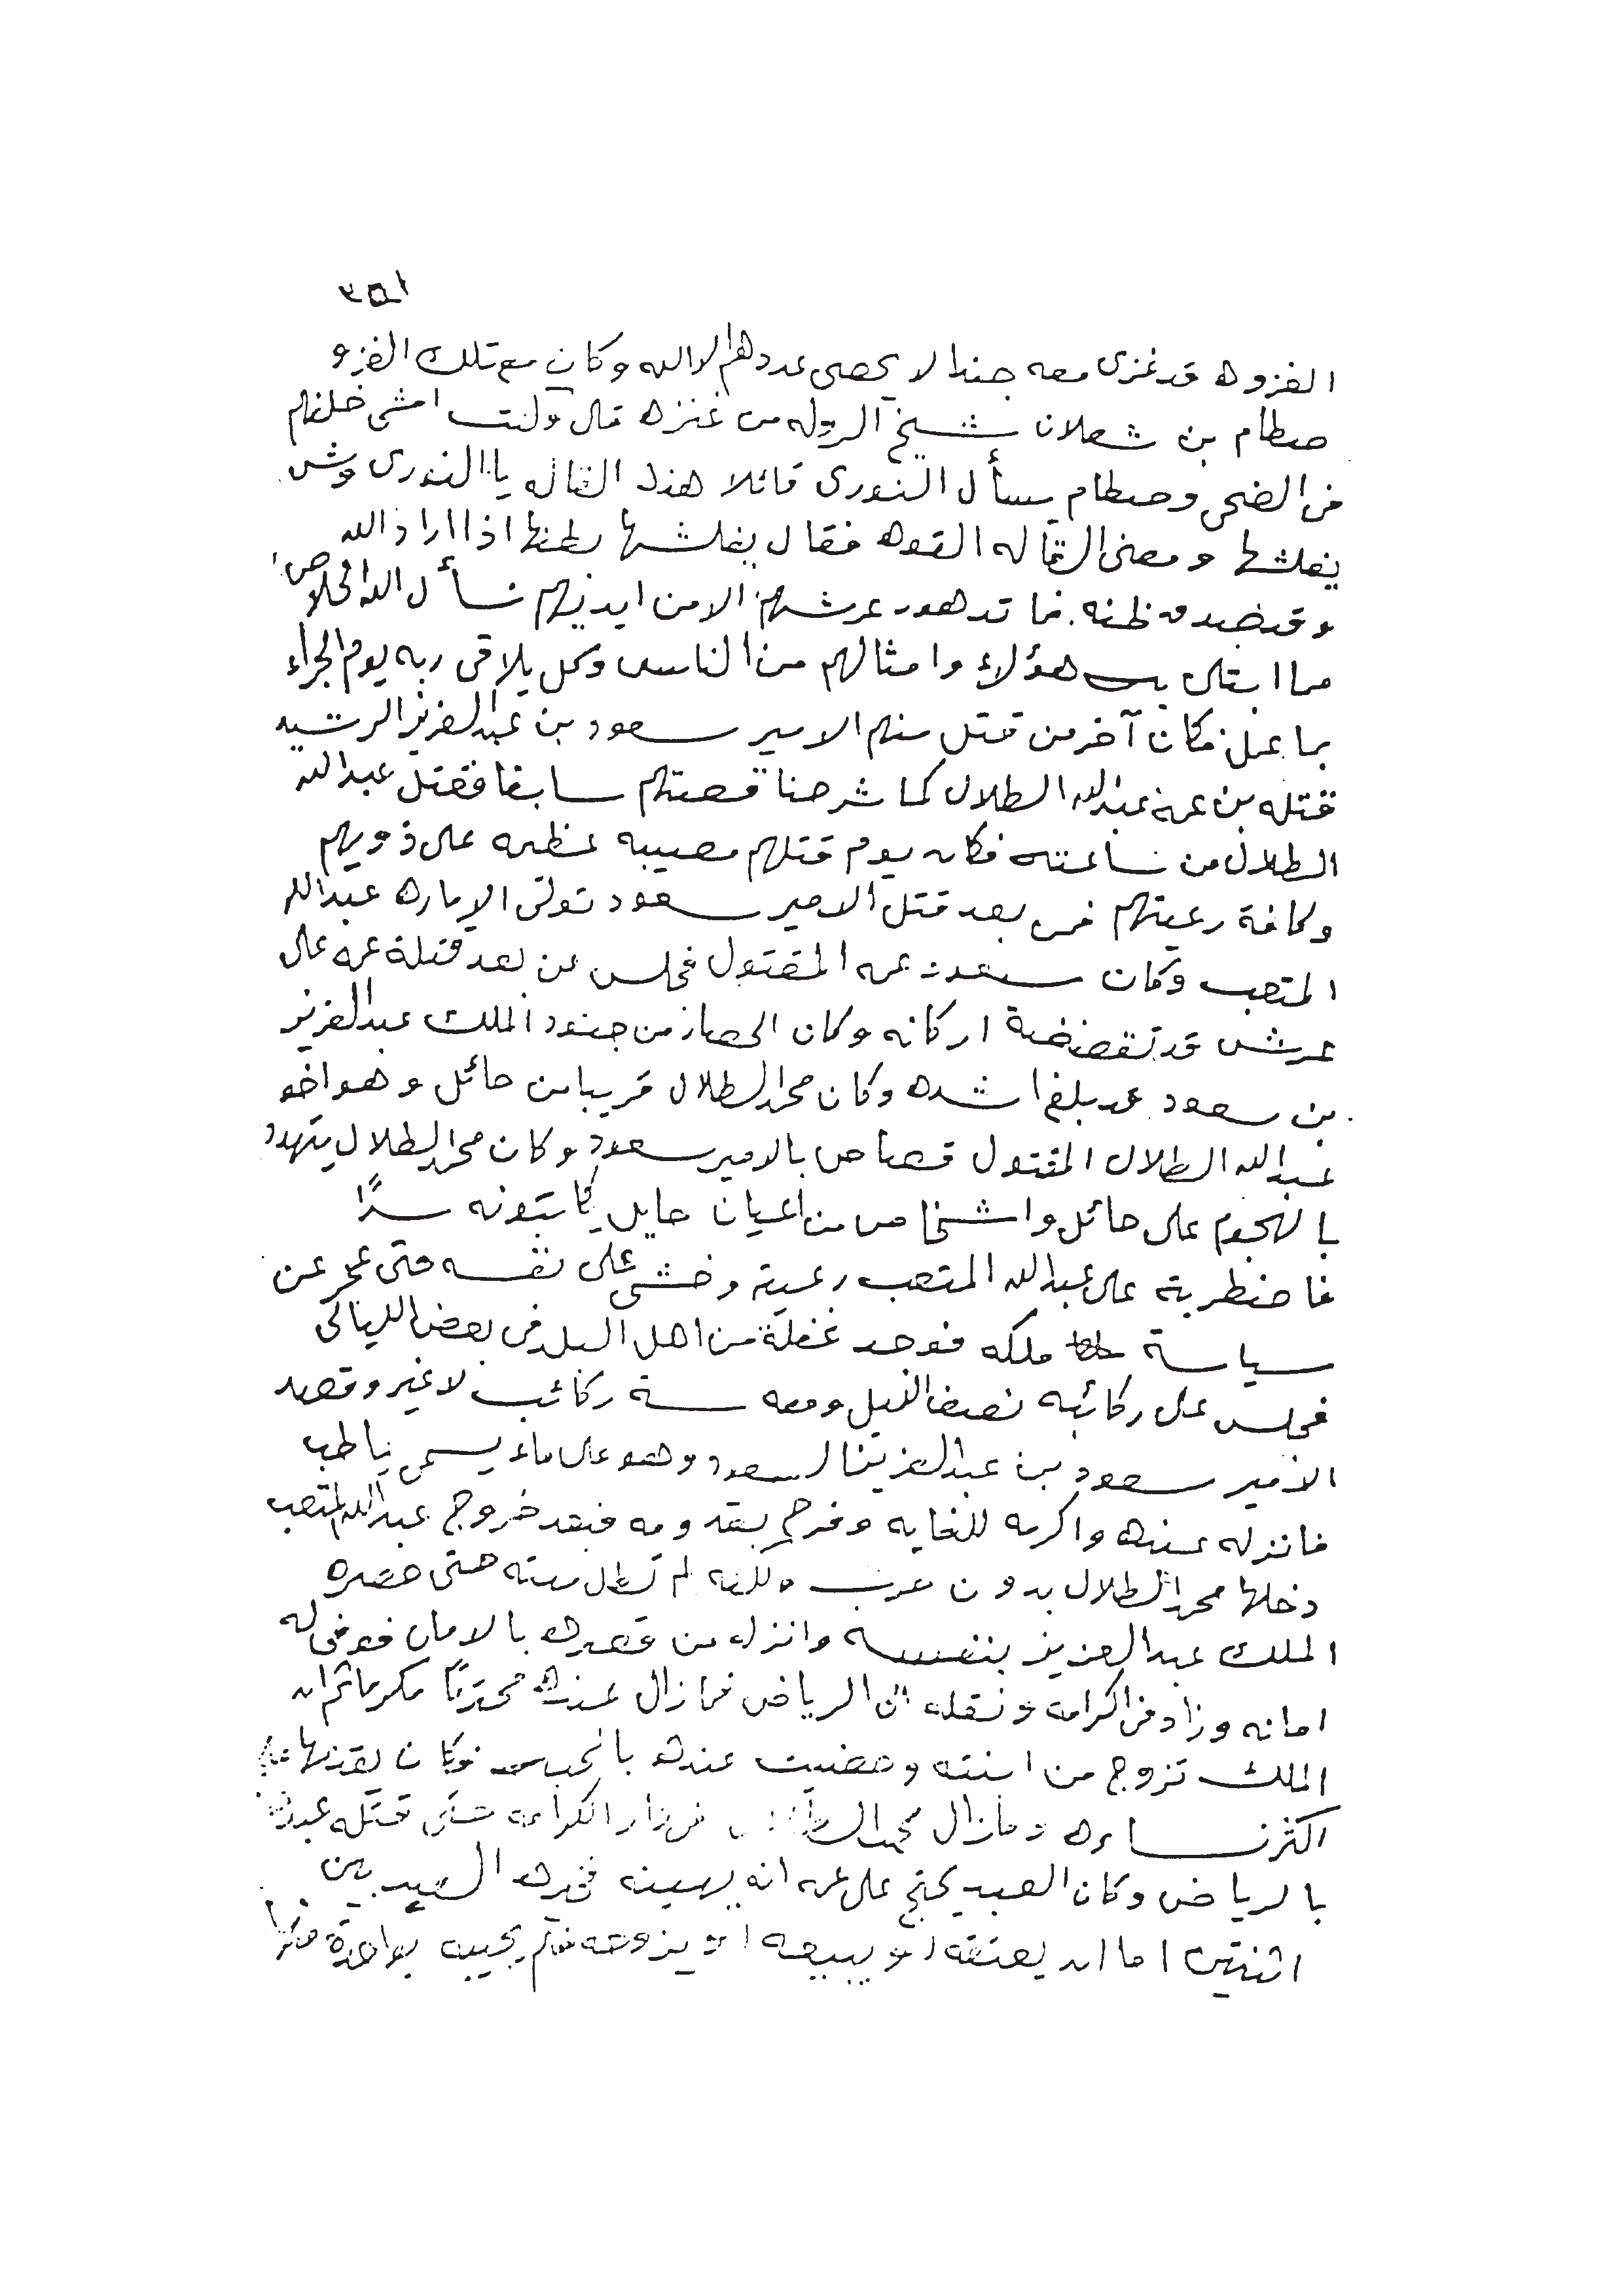 ٣٥١
الغزوه قد غزى معه جندا لا يحصى عددهم الا الله وكان مع تلك الغزو
صطام بن شعلان شيخ الروله من عنزه قال وكنت امشى خلفهم
فى الضحى وصطام يسأل النورى قائلا هذا القاله يا النورى وش
يفلشها ومعنى القاله القوه فقال يفلشها بطنها اذا اراد الله
وقد ضنه فما تدهور عرشهم الا من ايديهم نسأل الله الخلاص
مما ابتلى به هؤلاء وامثالهم من الناس وكل يلاقى ربه يوم الجزاء
بما عمل فكان آخر من قتل منهم الامير سعود بن عبدالعزيز الرشيد
قتله بن عمه عبدالله الطلال كما شرحنا قصتهم سابقا فقتل عبدالله
الطلال من ساعته فكان يوم قتلهم مصيبه عظيمه على ذويهم
وكافة رعيتهم فمن بعد قتل الامير سعود تولى الاماره عبدالله
المتعب وكان سعود عمه المقتول فجلس من بعد قتلة عمه على
عرش قد تقضضة اركانه وكان الحصار من جنود الملك عبدالعزيز
بن سعود قد بلغ اشده وكان محمد الطلال قريبا من حائل وهو اخو
عبدالله الطلال المقتول قصاص بالامير سعود وكان محمد الطلال يتهدد
بالهجوم على حائل واشخاص من اعيان حايل يكاتبونه سرًا
فاضطربة على عبدالله المتعب رعيته وخشى على نفسه حتى عجز عن
سياسة ملكه فوجد غفلة من اهل البلد فى بعض الليالى
فجلس على ركائبه نصف الليل ومعه ستة ركائب لا غير وقصد
الامير سعود بن عبدالعزيز السعود وهو على ماء يسمى ياطب
فانزله عنده واكرمه للغايه وفرح بقدومه فبعد خروج عبدالله المتعب
دخلها محمد الطلال بدون حرب ولكنه لم تطل مدته حتى حصره
الملك عبدالعزيز بنفسه وانزله من قصره بالامان فوفى له
امانه وزاد فى اكرامه ونقله الى الرياض فما زال عنده محترمًا مكرما ثم ان
الملك تزوج من ابنته وحضيت عنده بالحب فكان يقدمها على
اكثر نساءه ومازال محمد الطلال فى دار الكرامه حتى قتله عبده
بالرياض وكان العبد يحتج على عمه انه يهينه فخيره العبد بين
اثنتين اما ان يعتقه او يبيعه او يزوجه فلم يجيبه بواحدة منها